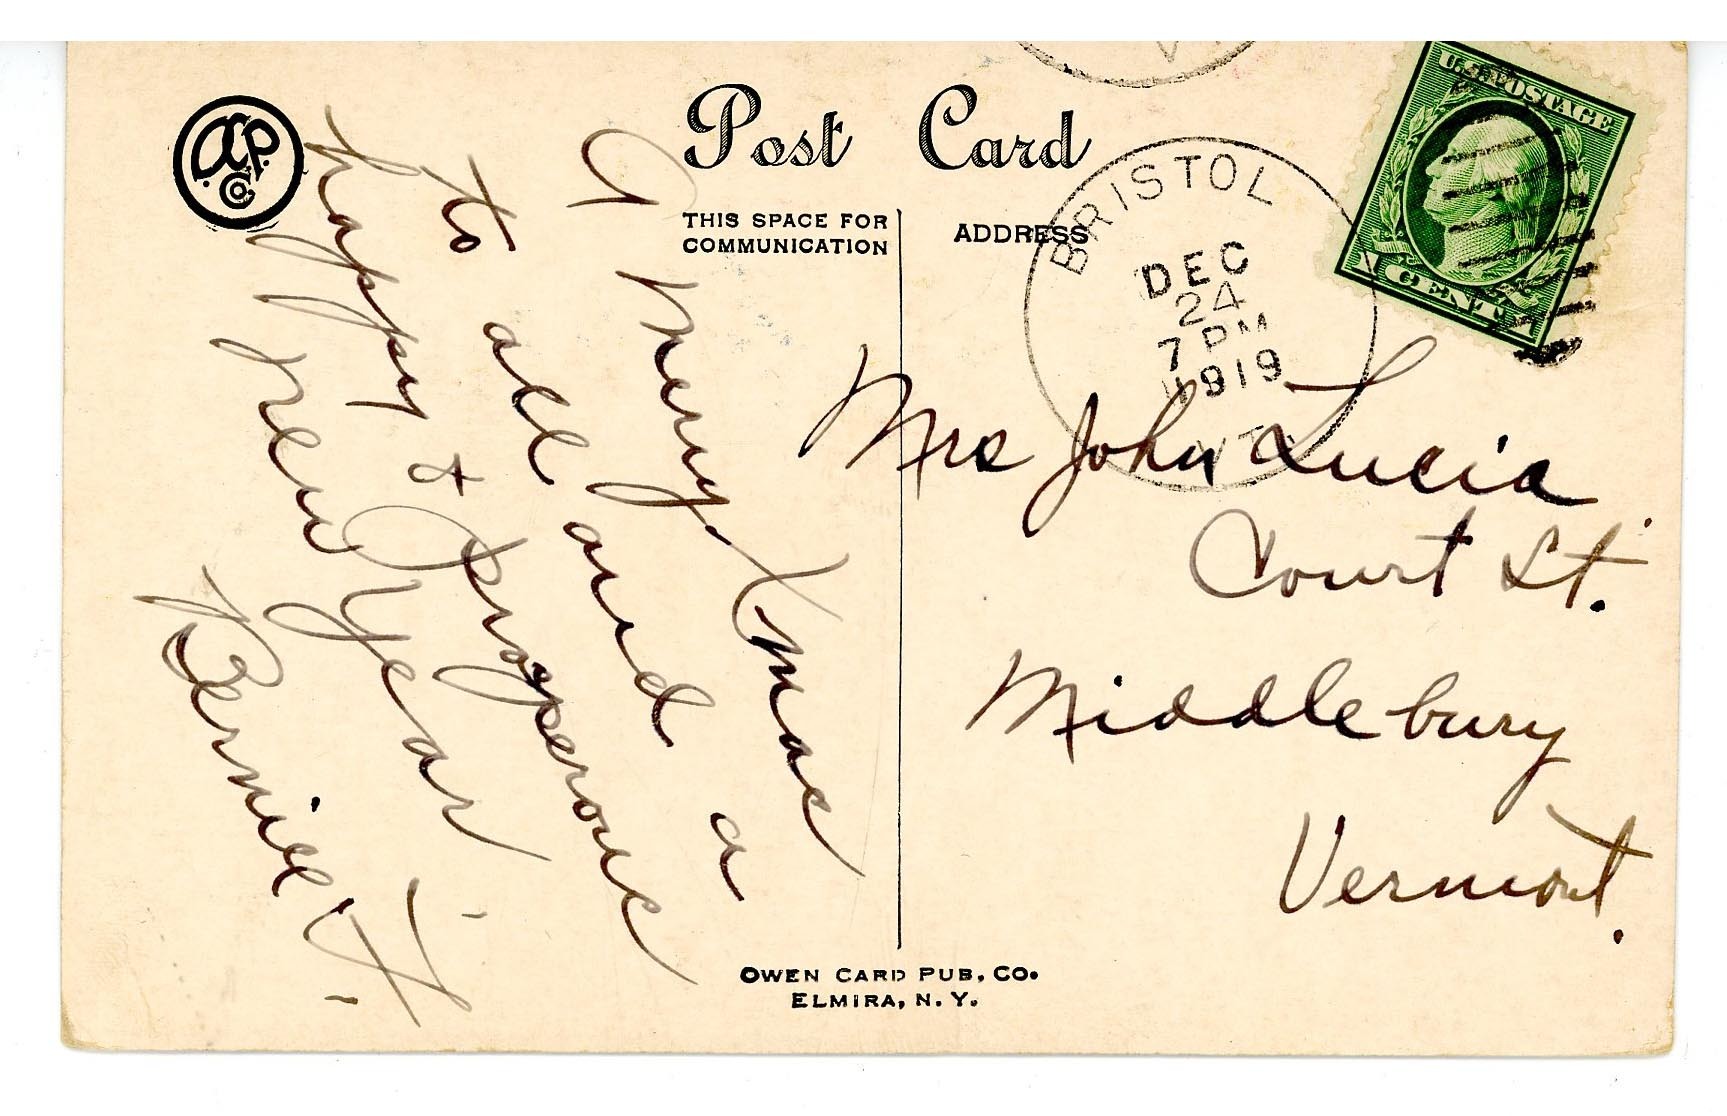 Post Card
THIS SPACE FOR
COMMUNICATION
ADDRESS
BRISTOL
DEC
24
7 PM
1919
VT.
U.S. POSTAGE
1 CENT 1
A Merry Xmas
to all and a
happy & Prosperous
New Year
Bernice
Mrs John Lucia
Court St.
Middlebury
Vermont.
OWEN CARD PUB. CO.
ELMIRA, N. Y.